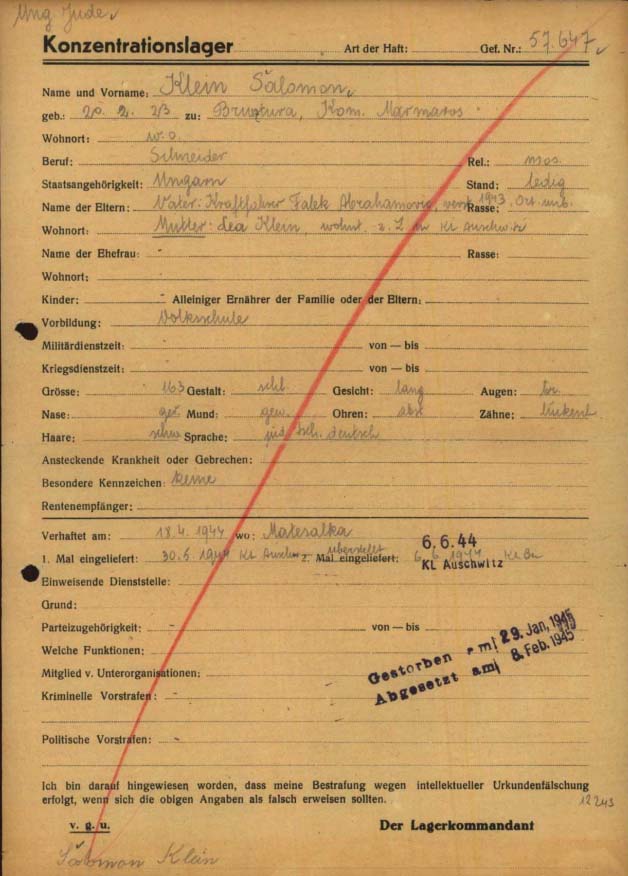 Ung. Jude
Konzentrationslager Art der Haft: Gef. Nr.: 57.647
Name und Vorname: Klein Šalomon
geb.: 20. 2. 23 zu: Kom. Marmaros
Wohnort: w.o.
Beruf: Schneider Rel.: mos.
Staatsangehörigkeit: Ungarn Stand: ledig
Name der Eltern: Vater: Kraftfahrer Falek Abrahamovic, 1943, Ort unb. Rasse:
Wohnort: Mutter: Lea Klein, wohnt z. Z. in KL Auschwitz
Name der Ehefrau: - Rasse:
Wohnort:
Kinder: - Alleiniger Ernährer der Familie oder der Eltern: -
Vorbildung: Volksschule
Militärdienstzeit: - von — bis
Kriegsdienstzeit: - von — bis
Grösse: 163 Gestalt: schl. Gesicht: lang Augen: br.
Nase: ger. Mund: gew. Ohren: abst. Zähne:
Haare: schw. Sprache: jid. tsch. deutsch
Ansteckende Krankheit oder Gebrechen:
Besondere Kennzeichen: keine
Rentenempfänger:
Verhaftet am: 18.4.1944 wo: Matesalka
6. 6. 44
1. Mal eingeliefert: 30.5.1944 KL Auschw. 2. Mal eingeliefert: überstellt 6.6.1944 KL Bu
KL Auschwitz
Einweisende Dienststelle:
Grund:
Parteizugehörigkeit: - von — bis
Welche Funktionen: -
Mitglied v. Unterorganisationen: -
Kriminelle Vorstrafen: -
Gestorben am 29. Jan. 1945
Abgesetzt am 8. Feb. 1945
Politische Vorstrafen: -
Ich bin darauf hingewiesen worden, dass meine Bestrafung wegen intellektueller Urkundenfälschung
erfolgt, wenn sich die obigen Angaben als falsch erweisen sollten.
12243
v. g. u. Der Lagerkommandant
Šalomon Klein